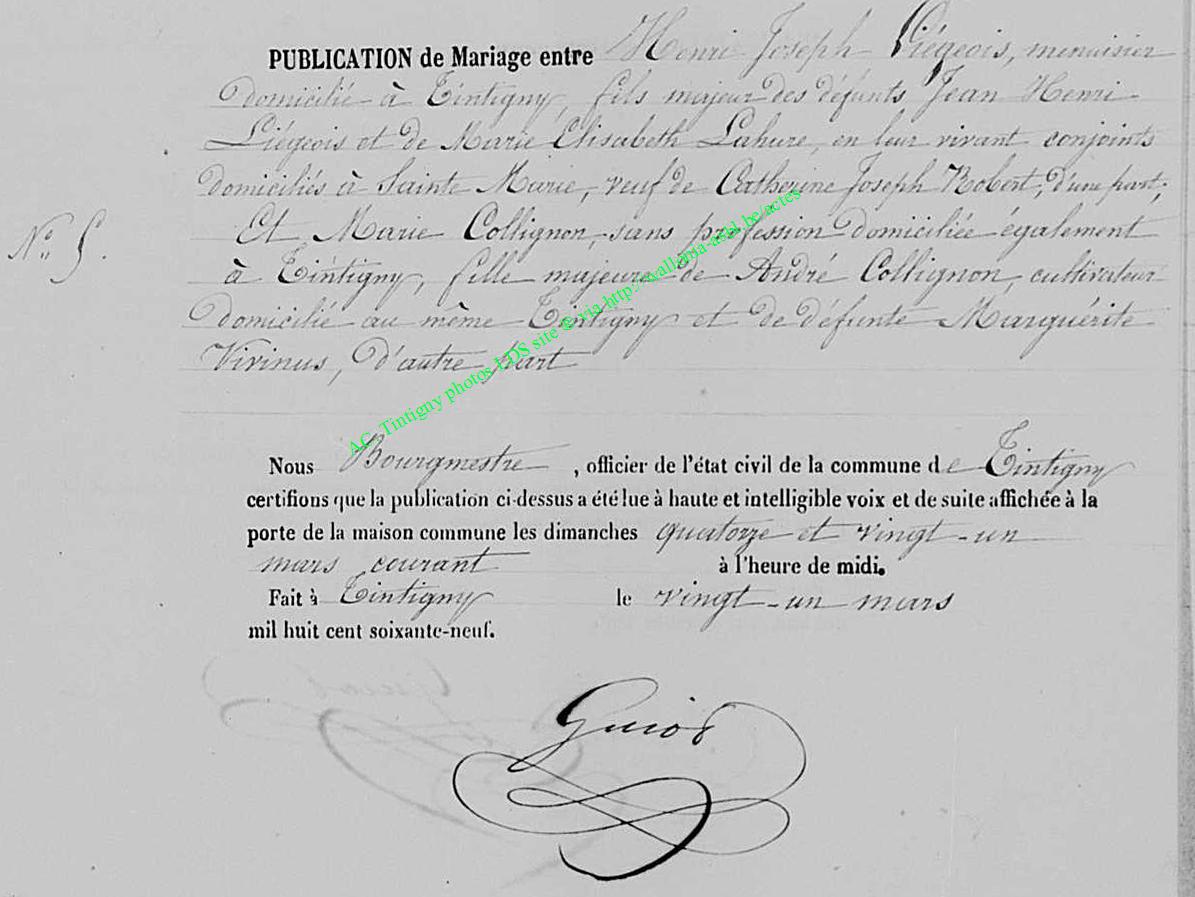 PUBLICATION de Mariage entre Henri Joseph Liégeois, menuisier
domicilié à Tintigny, fils majeur des défunts Jean Henri
Liégeois et de Marie Elisabeth Lahure, en leur vivant conjoints
domiciliés à Sainte Marie, veuf de Catherine Joseph Robert, d'une part;
Nº 5.
Et Marie Collignon, sans profession domiciliée également
à Tintigny, fille majeure de André Collignon, cultivateur
domicilié au même Tintigny et de défunte Marguérite
Vivinus, d'autre part
AC Tintigny photos LDS site © via http://wallonia-asbl.be/actes
Nous Bourgmestre , officier de l'état civil de la commune de Tintigny
certifions que la publication ci-dessus a été lue à haute et intelligible voix et de suite affichée à la
porte de la maison commune les dimanches quatorze et vingt-un
mars courant à l'heure de midi.
Fait à Tintigny le vingt-un mars
mil huit cent soixante-neuf.